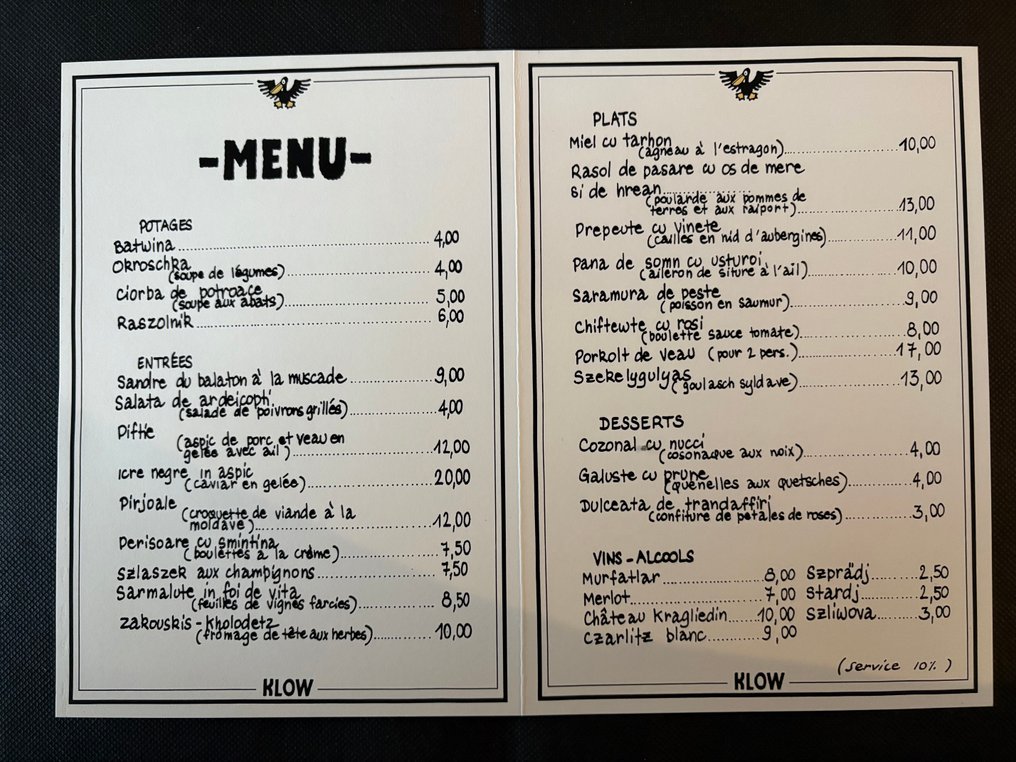 -MENU-
POTAGES
Batwina 4,00
Okroschka
(soupe de légumes) 4,00
Ciorba de potroace
(soupe aux abats) 5,00
Raszolnik 6,00
ENTRÉES
Sandre du balaton à la muscade 9,00
Salata de ardeicopti
(salade de poivrons grillés) 4,00
Piftie (aspic de porc et veau en
gelée avec ail) 12,00
Icre negre in aspic
(caviar en gelée) 20,00
Pirjoale (croquette de viande à la
moldave) 12,00
Perisoare cu smintina
(boulettes à la crème) 7,50
Szlaszek aux champignons 7,50
Sarmalute in foi de vita
(feuilles de vignes farcies) 8,50
Zakouskis - Kholodetz
(fromage de tête aux herbes) 10,00
KLOW
PLATS
Miel cu tarhon
(agneau à l'estragon) 10,00
Rasol de pasare cu os de mere
si de hrean
(poularde aux pommes de
terres et aux raiport) 13,00
Prepeute cu vinete
(cailles en nid d'aubergines) 11,00
Pana de somn cu usturoi
(aileron de siture à l'ail) 10,00
Saramura de peste
(poisson en saumur) 9,00
Chiftewte cu rosi
(boulette sauce tomate) 8,00
Porkolt de veau (pour 2 pers.) 17,00
Szekelygulyas
(goulasch syldave) 13,00
DESSERTS
Cozonal cu nucci
(cosonaque aux noix) 4,00
Galuste cu prune
(quenelles aux quetsches) 4,00
Dulceata de trandaffiri
(confiture de pétales de roses) 3,00
VINS - ALCOOLS
Murfatlar 8,00 Szprädj 2,50
Merlot 7,00 Stardj 2,50
Château Kragliedin 10,00 Szliwova 3,00
Czarlitz blanc 9,00
(Service 10%)
KLOW